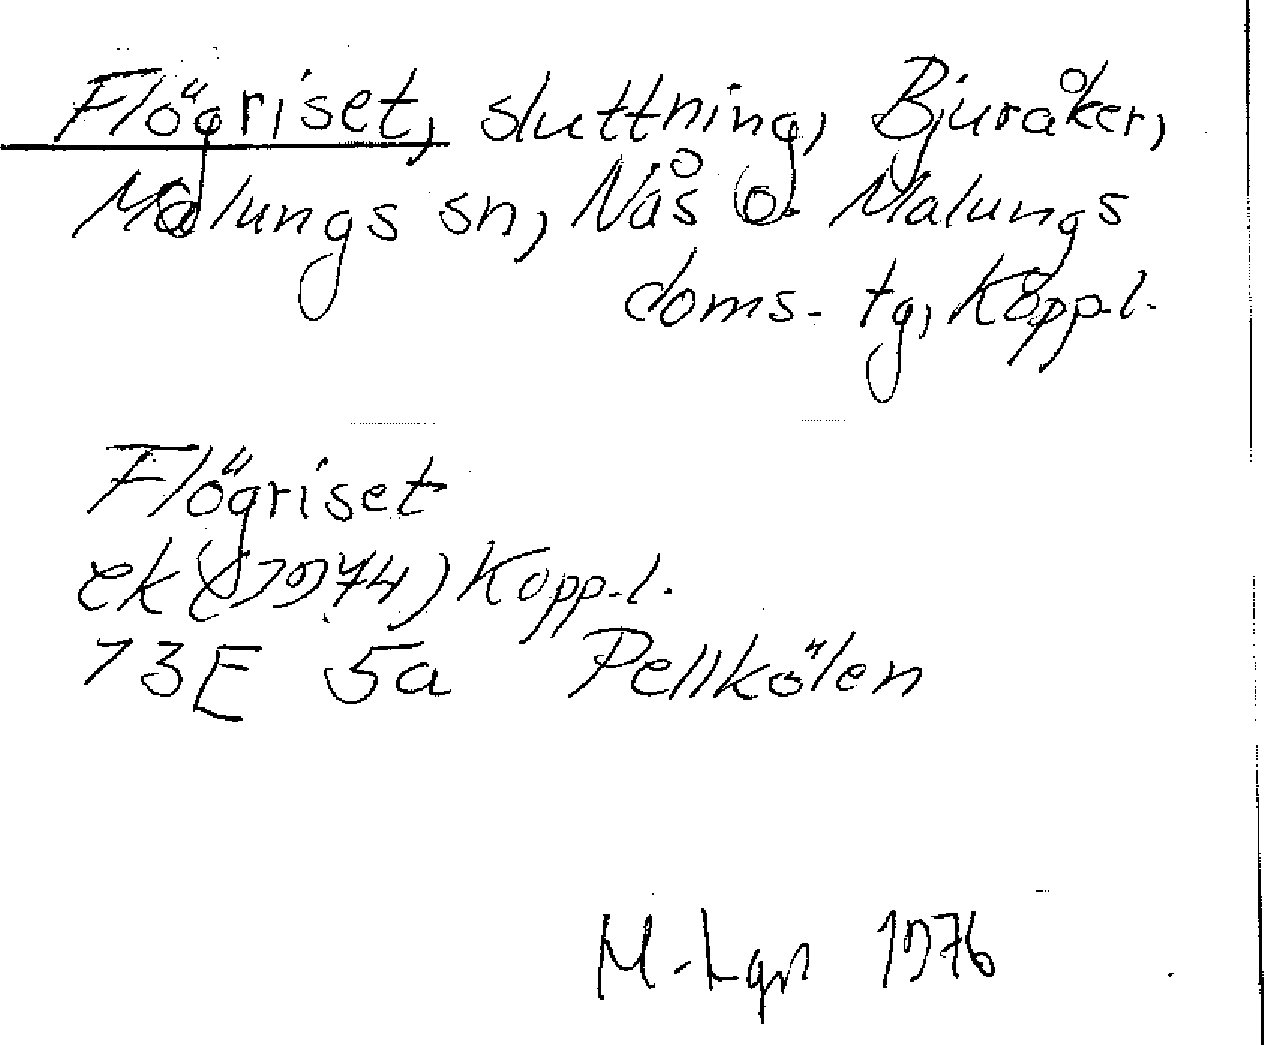 Flögriset, sluttning, Bjuråker,
Malungs sn, Nås o. Malungs
doms. tg, Kopp.l.
Flögriset
ek (1974) Kopp.l.
13E 5a Pellkölen
M-Lgn 1976